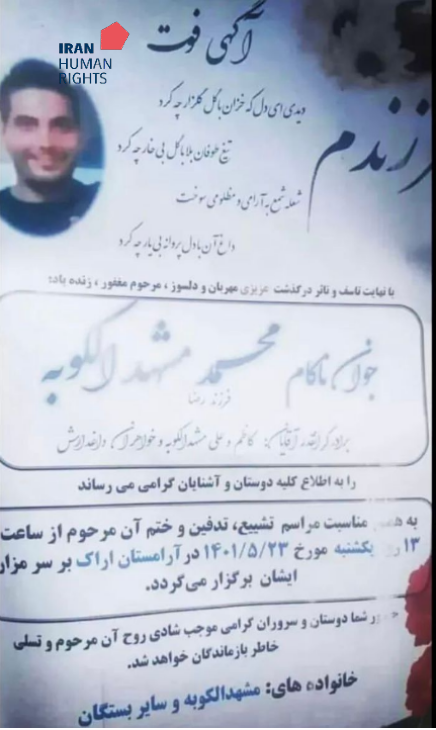 IRAN
HUMAN
RIGHTS
آگهی فوت
فرزندم
دیدی ای دل که خزان با گل گلزار چه کرد
تیغ طوفان بلا با گل بی خار چه کرد
شعله شمع به آرامی و مظلومی سوخت
داغ آن با دل پروانه بی یار چه کرد
با نهایت تاسف و تاثر درگذشت عزیزی مهربان و دلسوز ، مرحوم مغفور ، زنده یاد:
جوان ناکام محمد مشهدالکوبه
فرزند رضا
برادر گرانقدر آقایان: کاظم و علی مشهدالکوبه و خواهران داغدارش
را به اطلاع کلیه دوستان و آشنایان گرامی می رساند
به همین مناسبت مراسم تشییع، تدفین و ختم آن مرحوم از ساعت
۱۳ روز یکشنبه مورخ ۱۴۰۱/۵/۲۳ در آرامستان اراک بر سر مزار
ایشان برگزار می‌گردد.
حضور شما دوستان و سروران گرامی موجب شادی روح آن مرحوم و تسلی
خاطر بازماندگان خواهد شد.
خانواده های: مشهدالکوبه و سایر بستگان